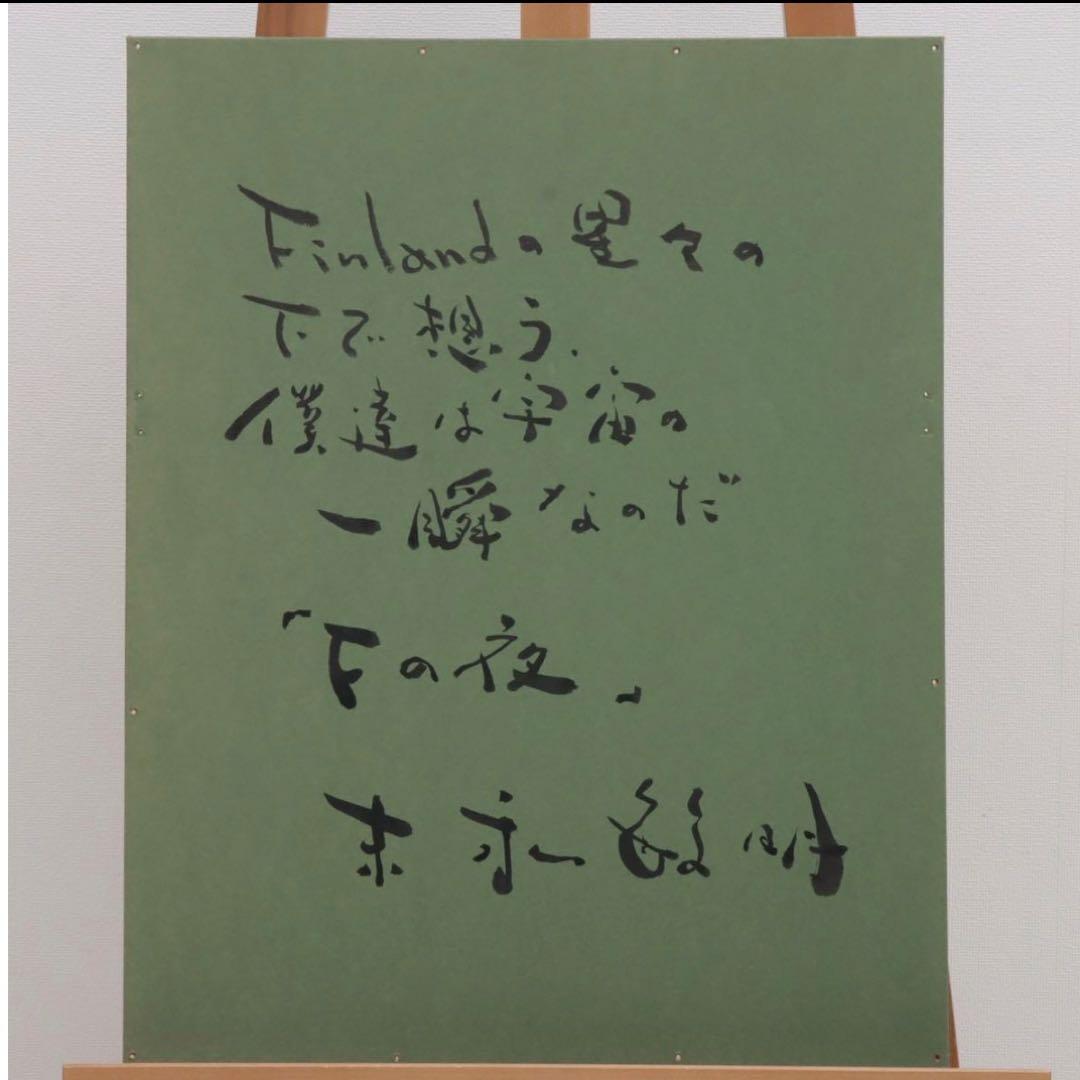 Finlandの星々の
下で想う、
僕達は宇宙の
一瞬なのだ
「Fの夜」
末永敏明